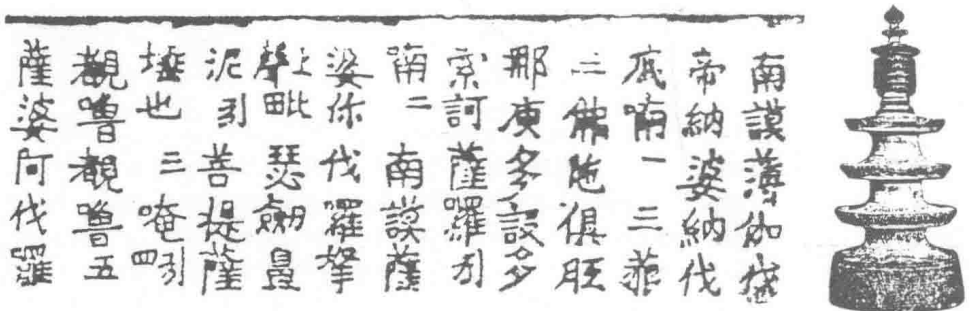 南謨薄伽伐
帝納婆納伐
底喃一三藐
三佛陁俱胝
那庾多設多
索訶薩羅引
喃二南謨薩
婆你伐羅拏
上聲毗瑟劒鼻
泥引菩提薩
埵也三唵引四
覩嚕覩嚕五
薩婆阿伐羅